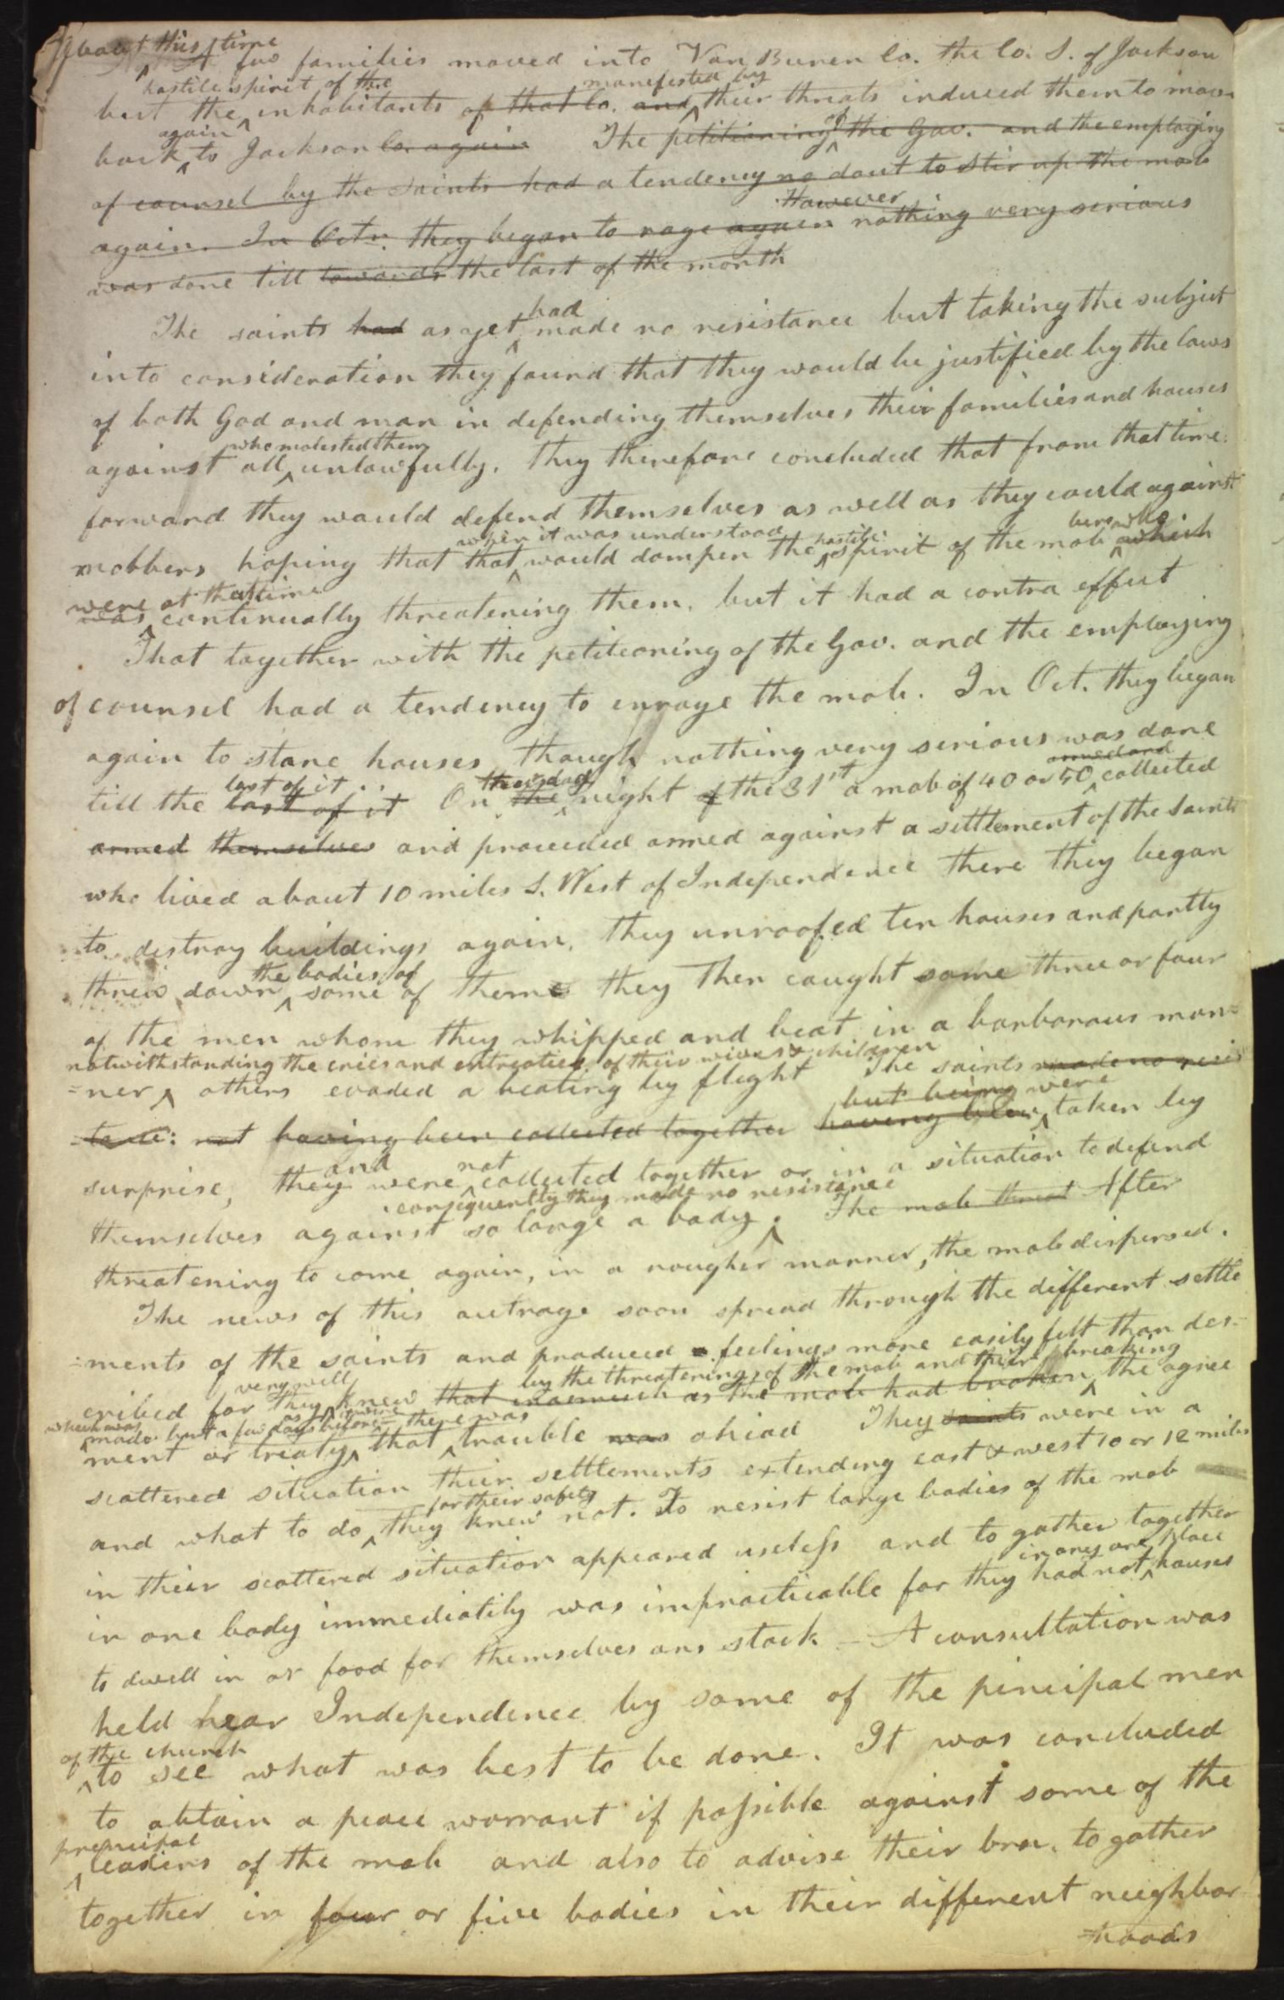 About this time
A few families moved into Van Buren Co. the Co. S. of Jackson
hostile spirit of the manifested by
but the inhabitants of that Co. and their threats induced them to move
again
back to Jackson Co. again The petitioning of the Gov. and the employing
of counsel by the saints had a tendency no dout to stir up the mob
However
again. In Octr. they began to rage again nothing very serious
was done till towards the last of the month
had
The saints had as yet made no resistance but taking the subject
into consideration they found that they would be justified by the laws
of both God and man in defending themselves their families and houses
who molested them
against all unlawfully. They therefore concluded that from that time
forward they would defend themselves as well as they could against
when it was understood hostile bers who
mobbers hoping that that would dampen the spirit of the mob which
were at that time
was continually threatening them. but it had a contra effect
That together with the petitioning of the Gov. and the employing
of counsel had a tendency to enrage the mob. In Oct. they began
again to stone houses, though nothing very serious was done
last of it thursday armed and
till the last of it On the night of the 31st a mob of 40 or 50 collected
armed themselves and proceeded armed against a settlement of the Saints
who lived about 10 miles S. West of Independence there they began
to destroy buildings again. they unroofed ten houses and partly
the bodies of
threw down some of them they Then caught some three or four
of the men whom they whipped and beat in a barbarous man=
notwithstanding the cries and entreaties of their wives & children
=ner others evaded a beating by flight The saints made no resis
but being were
=tance: not having been collected together having been taken by
and not
surprise, they were collected together or in a situation to defend
consequently they made no resistance
themselves against so large a body. The mob threat After
threatening to come again, in a rougher manner, the mob dispersed.
The news of this outrage soon spread through the different settle
=ments of the saints and produced feelings more easily felt than des-
very well by the threatenings of the mob and their breaking
cribed for they knew that inasmuch as the mob had broken the agree
which was made but a few days before as it were there was
ment or treaty that trouble was ahead They saints were in a
scattered situation their settlements extending east & west 10 or 12 miles
for their safety
and what to do they knew not. To resist large bodies of the mob
in their scattered situation appeared useless and to gather together
in any one place
in one body immediately was impracticable for they had not houses
to dwell in or food for themselves ans stock – A consultation was
held near Independence by some of the pincipal men
of the church
to see what was best to be done. It was concluded
to obtain a peace warrant if possible against some of the
principal
leaders of the mob and also to advise their bren. to gather
together in four or five bodies in their different neighbor
hoods